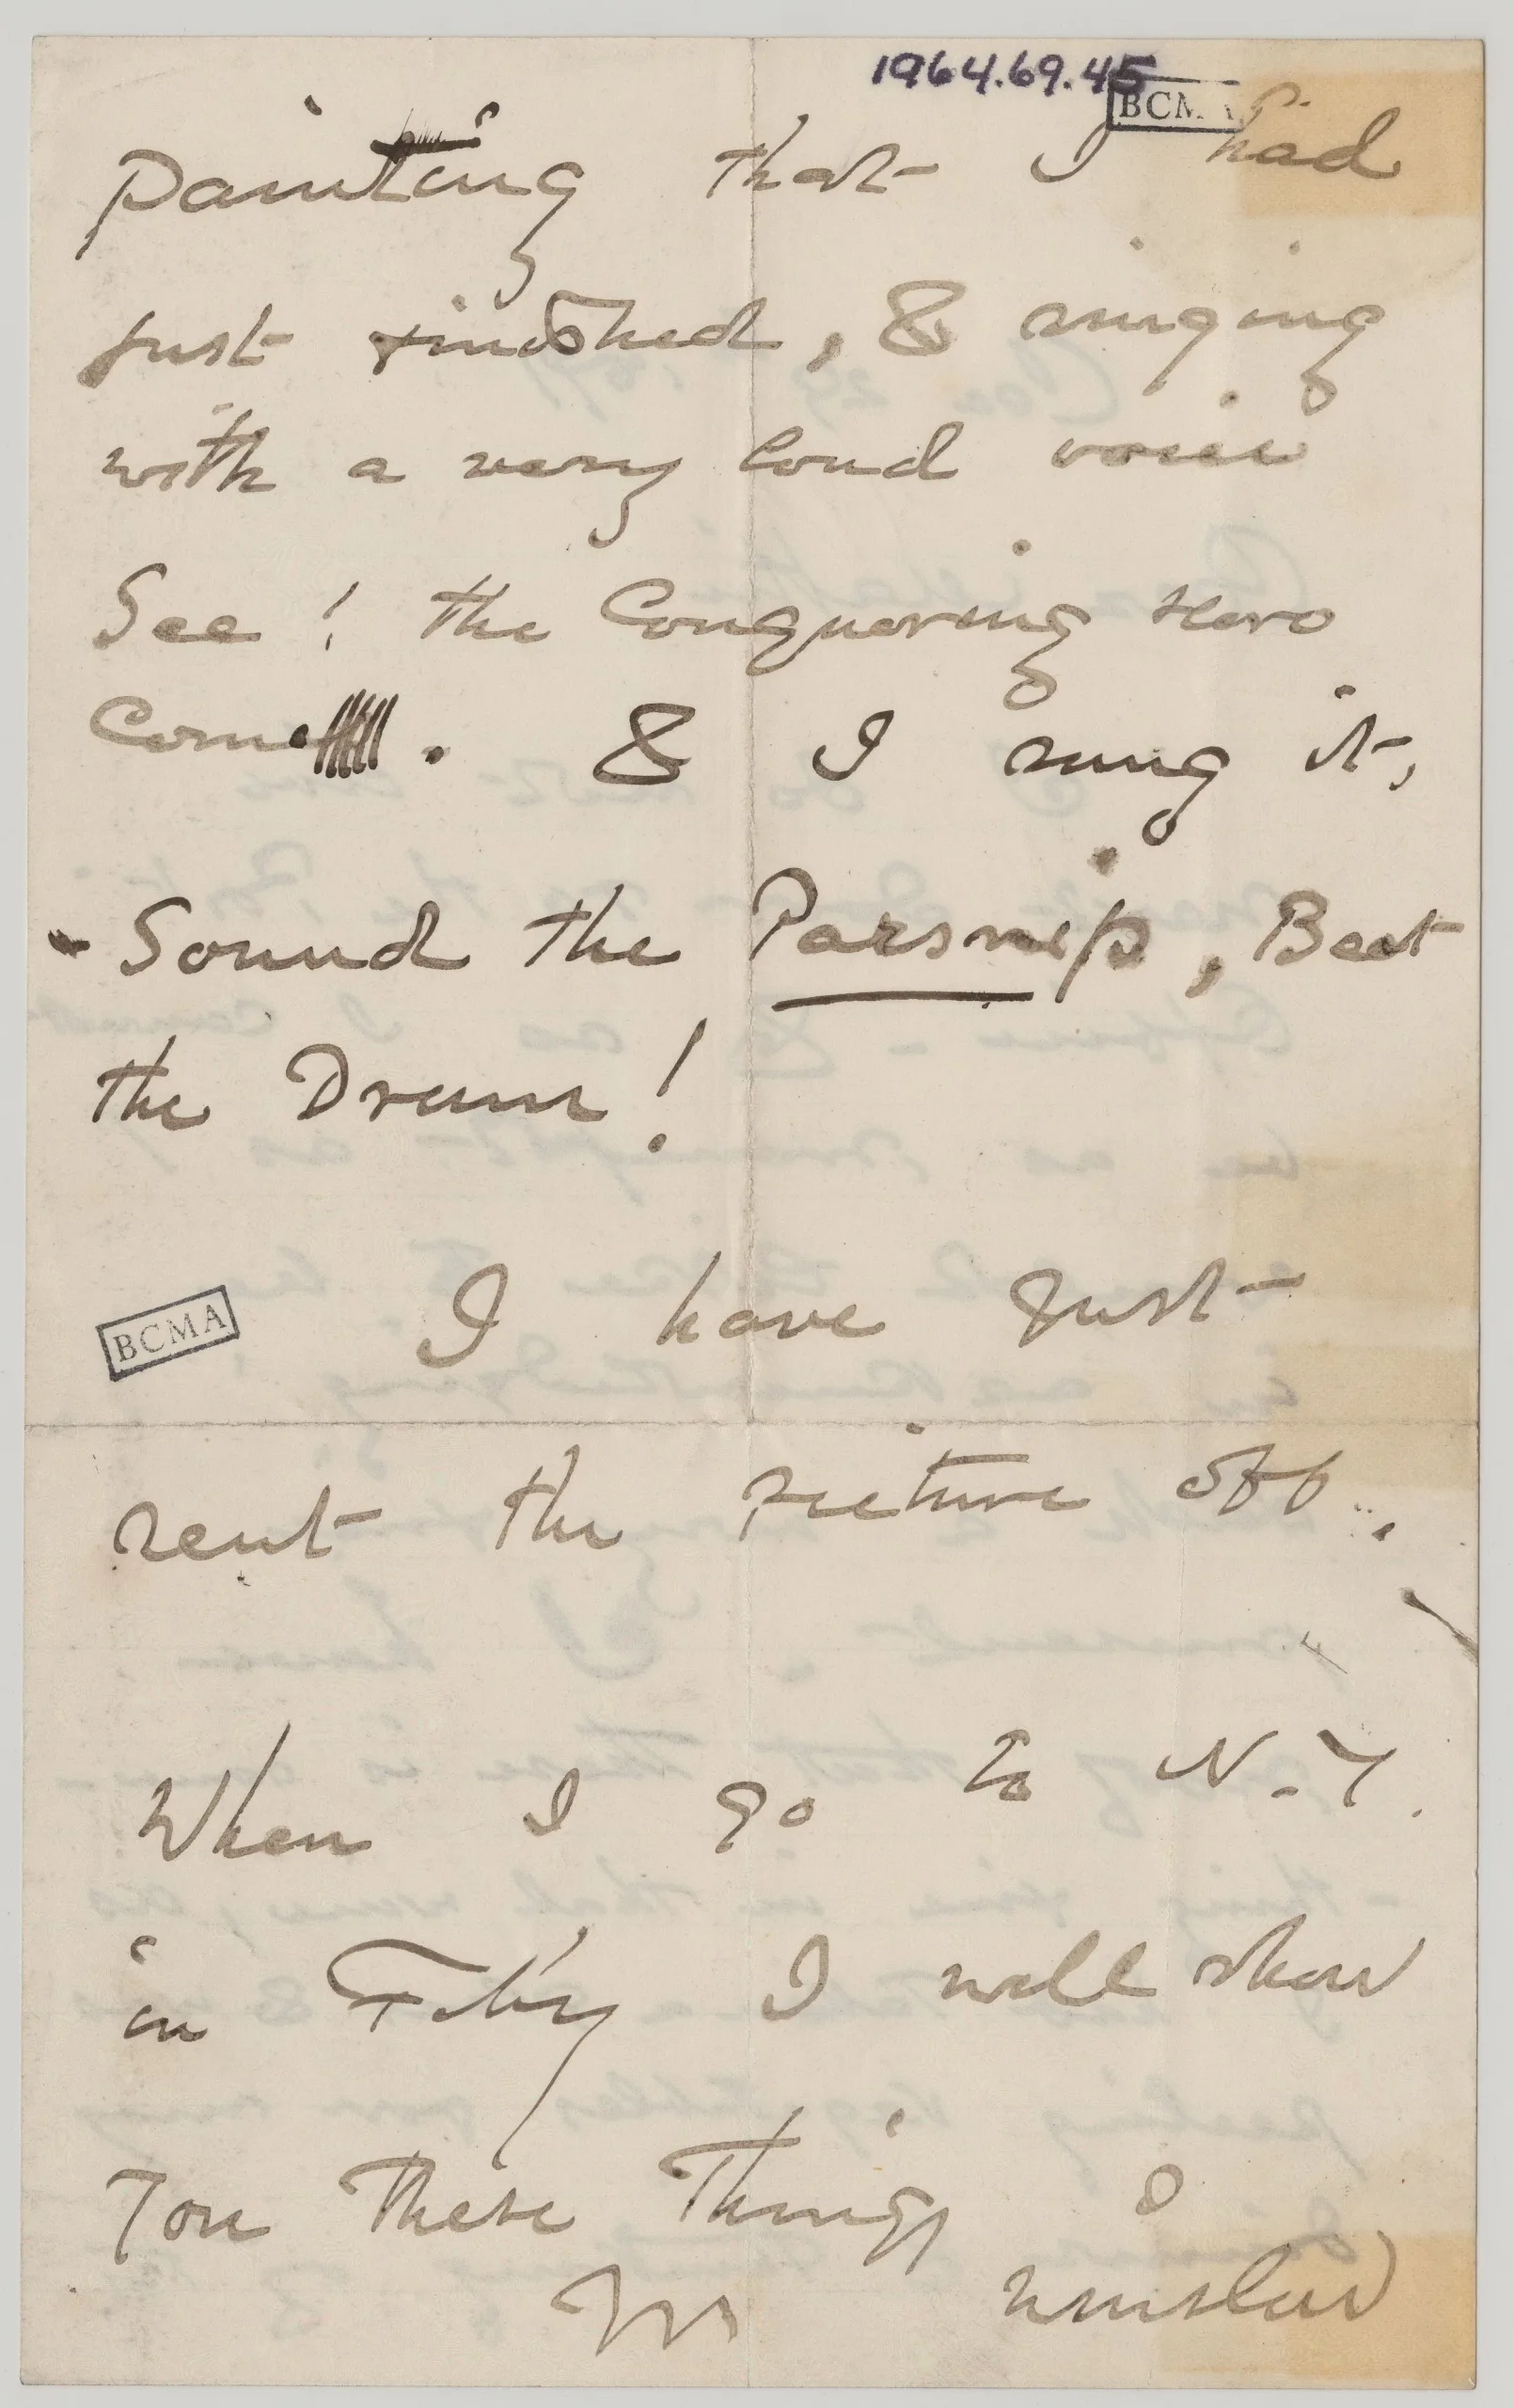 1964.69.45
BCMA
painting that I had
just finished, & singing
with a very loud voice
See! the Conquering Hero
Come. & I sung it,
- Sound the Parsnip, Beat
the Drum!
BCMA
I have just
sent the picture off.
When I go to N.Y.
in Feby I will show
You these things
Winslow